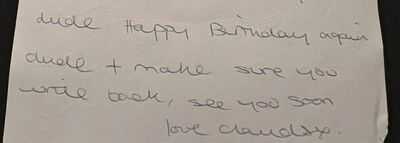 dude Happy Birthday again
dude + make sure you
write back, see you soon
love